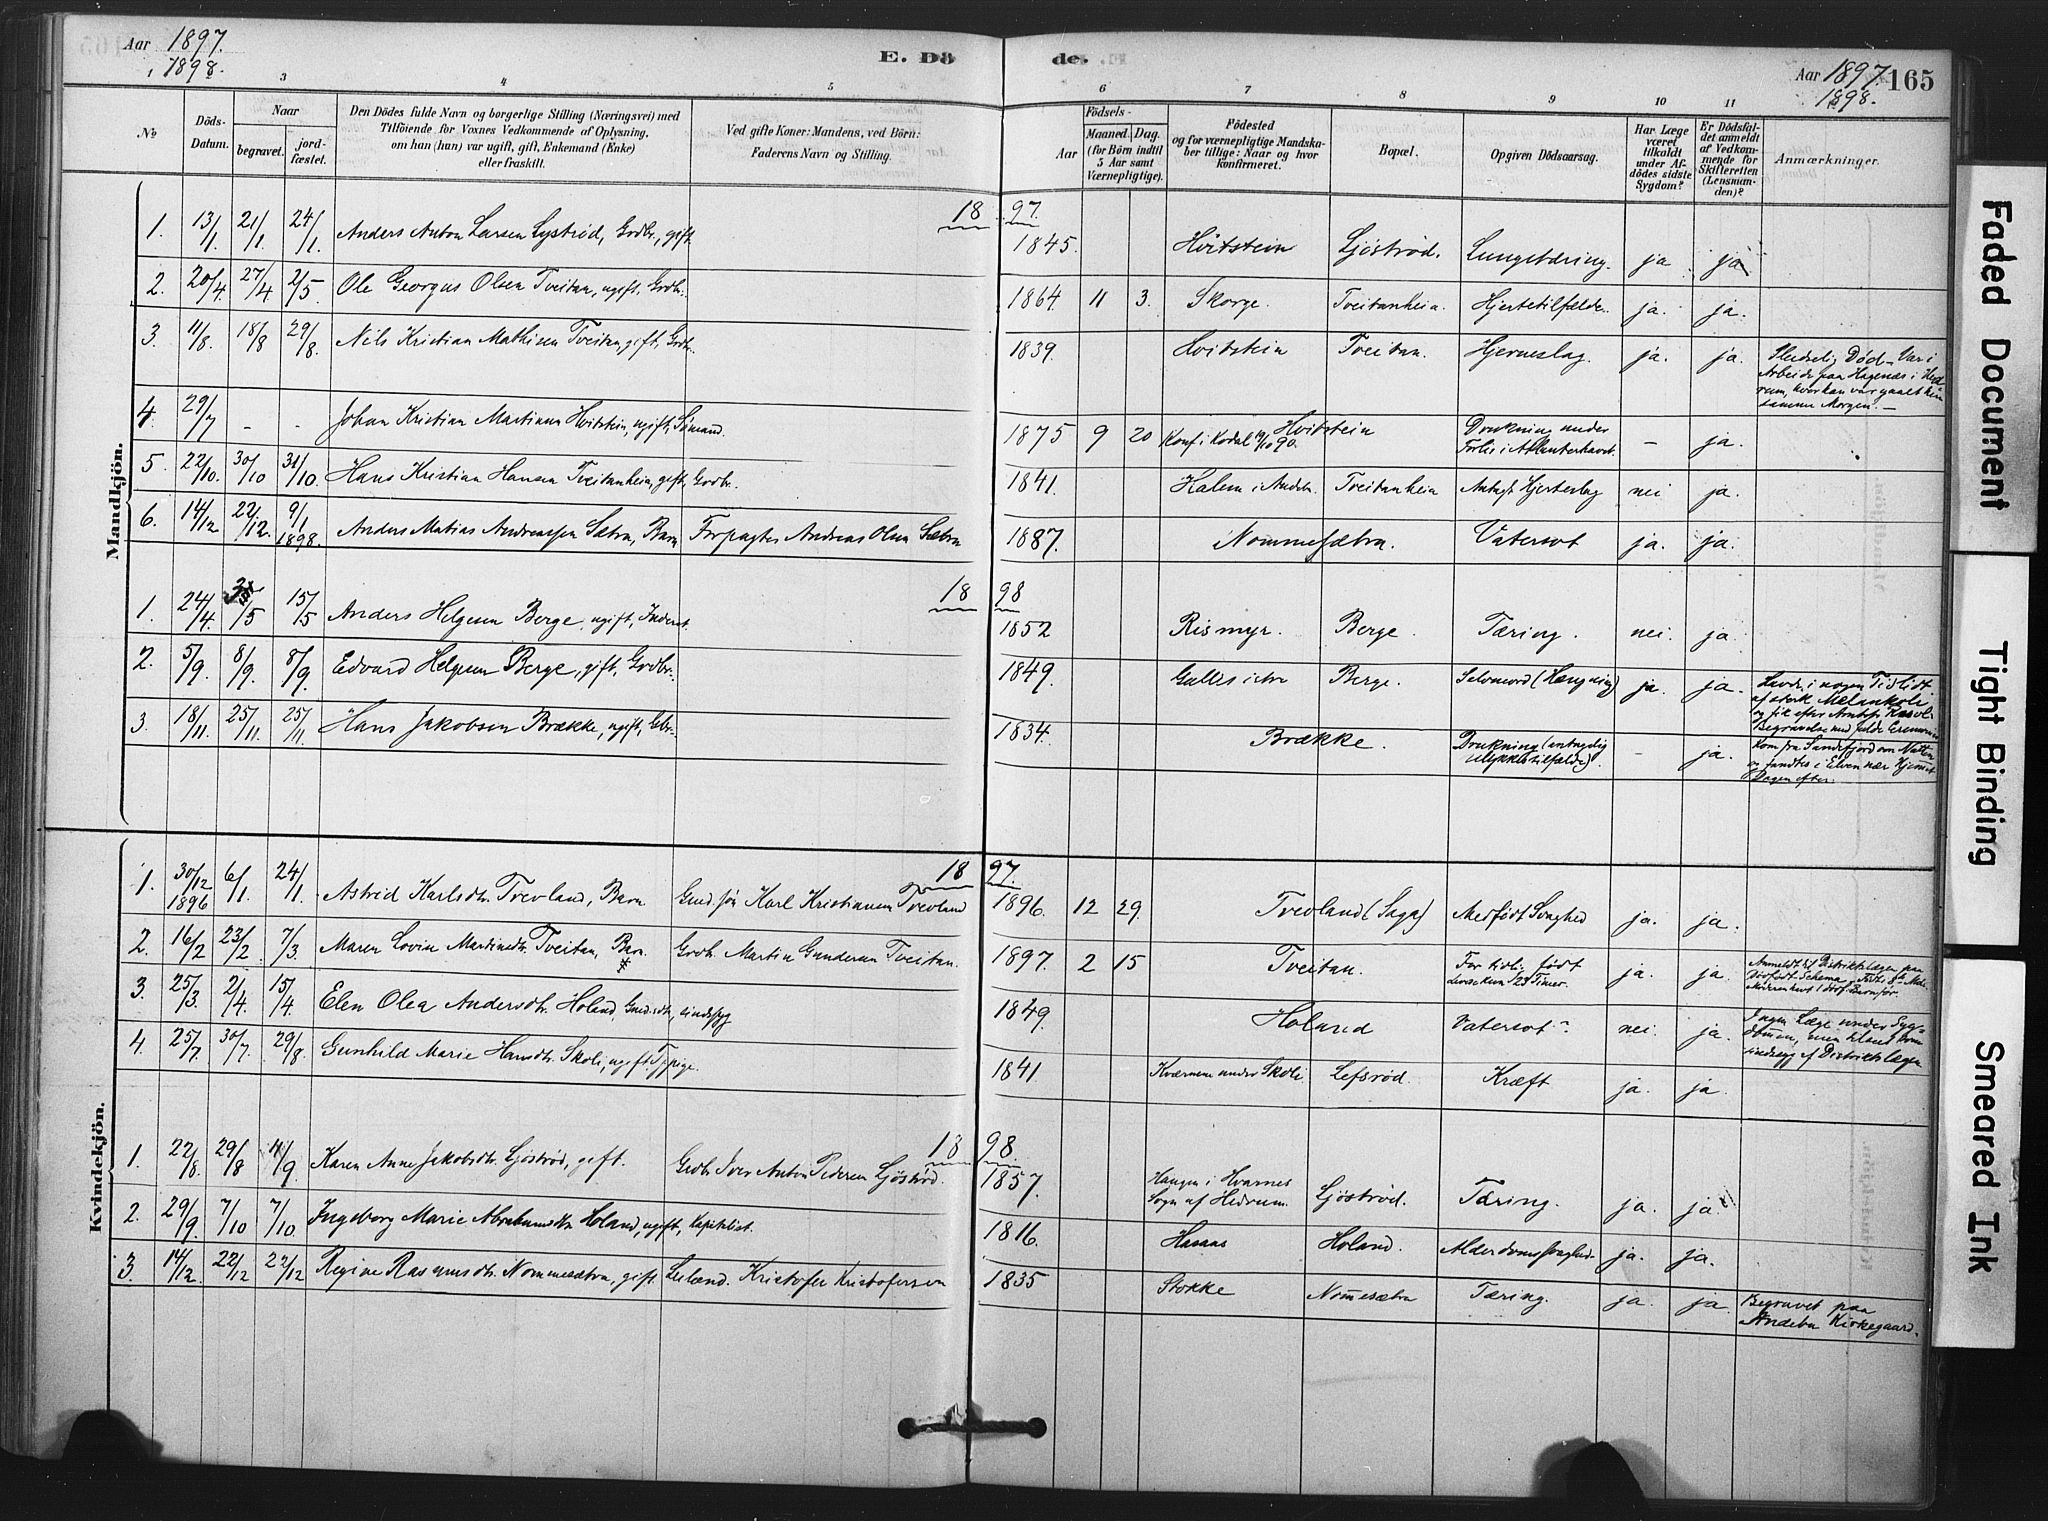 Aar 1897.
1898.
E. Dö de.
Aar 1897. 165
1898.
3 4 5 6 7 8 9 10 11
No
Döds-Datum.
Naar
begravet.
jord-fæstet.
Den Dödes fulde Navn og borgerlige Stilling (Næringsvei) med
Tilföiende for Voxnes Vedkommende af Oplysning,
om han (hun) var ugift, gift, Enkemand (Enke)
eller fraskilt.
Ved gifte Koner: Mandens, ved Börn:
Faderens Navn og Stilling.
Födsels-
Aar
Maaned. Dag.
(for Börn indtil
5 Aar samt
Værnepligtige).
Födested
og for værnepligtige Mandska-
ber tillige: Naar og hvor
konfirmeret.
Bopæl.
Opgiven Dödsaarsag.
Har Læge
været
tilkaldt
under Af-
dödes sidste
Sygdom?
Er Dödsfal-
det anmeldt
af Vedkom-
mende for
Skifteretten
(Lensman-
den)?
Anmærkninger.
Mandkjön.
18 97.
1. 13/1. 21/1. 24/1. Anders Anton Larsen Lystrød, Grdbr., gift. 1845. Hvitstein Ljøstrød. Lungetæring. ja ja
2. 20/4. 27/4 2/5. Ole Georgus Olsen Tveitan, ugift, Grdbr. 1864. 11 3. Skorge. Tveitanheia. Hjertetilfælde. ja. ja.
3. 11/8. 18/8 29/8. Nils Kristian Mathisen Tveitan, gift, Grdbr. 1839. Hvitstein Tveitan. Hjerneslag. ja. ja. Pludselig Död – Var i
Arbeide paa Hagenæs i Hed-
rum, hvor han var gaaet hen
samme Morgen. –
4. 29/7 - - Johan Kristian Martinsen Hvitstein, ugift, Sømand. 1875 9 20 Hvitstein
Konf. i Kodal 19/10 90. Drukning under
Forlis i Atlanterhavet. - ja.
5. 22/10. 30/10 31/10. Hans Kristian Hansen Tveitanheia, gift, Grdbr. 1841. Halem i Andeb. Tveitanheia Antagl. Hjerteslag nei ja.
6. 14/12. 22/12. 9/1 1898. Anders Matias Andreassen Sætra, Barn Forpagter Andreas Olsen Sætra 1887. Nommesætra. Vatersot ja. ja.
18 98
1. 24/4. /5 15/5 Anders Helgesen Berge, ugift, Inderst. 1852 Rismyr. Berge. Tæring. nei. ja.
2. 5/9. 8/9. 8/9. Edvard Helgesen Berge, gift, Grdbr. 1849. Berge. Selvmord (Hængning) ja. ja. Levde i nogen Tid lidt
af sterk Melankoli
og fik efter
Begravelse med fulde Ceremonier
3. 18/11. 25/11. 25/11. Hans Jakobsen Brække, ugift, Gbr. 1834. Brække. Drukning (antagelig
ulykkestilfælde). - ja. Kom fra Sandefjord om Natten
og fandtes i Elven nær Hjemmet
Dagen efter.
Kvindekjön.
18 97.
1. 30/12 1896 6/1. 24/1. Astrid Karlsdtr. Trevland, Barn Gmd. Karl Kristiansen Trevland 1896. 12 29. Trevland (Saga) Medfödt Svaghed ja. ja.
2. 16/2 23/2 7/3. Maren Lovise Martinsdtr. Tveitan, Barn Grdbr. Martin Gundersen Tveitan. 1897. 2 15 Tveitan. For tidlig födt
Levde kun 23 Timer. ja. ja. Anmeldt af Distriktslægen paa
3. 25/3. 2/4. 15/4. Elen Olea Andersdtr. Holand, Gmd.dtr., sindssyg 1849. Holand Vatersot nei ja. Ingen Læge under Syg-
dommen, men
sindssyg af Distriktslægen
4. 25/7. 30/7. 29/8. Gunhild Marie Hansdtr. Skoli, ugift, Tjpige. 1841 Kværnene under Skoli Lefsrød. Kræft ja. ja.
18 98.
1. 22/8. 29/8 4/9. Karen Anne Jakobsdtr. Ljøstrød, gift. Grdbr. Iver Anton Pedersen Ljøstrød. 1857. Haugen i Hvarnes
Sogn af Hedrum. Ljøstrød. Tæring. ja. ja.
2. 29/9. 7/10 7/10. Ingeborg Marie Abrahamsdtr. Holand, ugift, Kapitalist. 1816. Hasaas Holand. Alderdomssvaghed. ja. ja.
3. 14/12. 22/12 22/12 Regine Rasmusdtr. Nommesætra, gift. Leilænd. Kristofer Kristofersen 1835 Stokke Nommesætra Tæring. ja. ja. Begravet paa
Andebu Kirkegaard.
Faded Document
Tight Binding
Smeared Ink